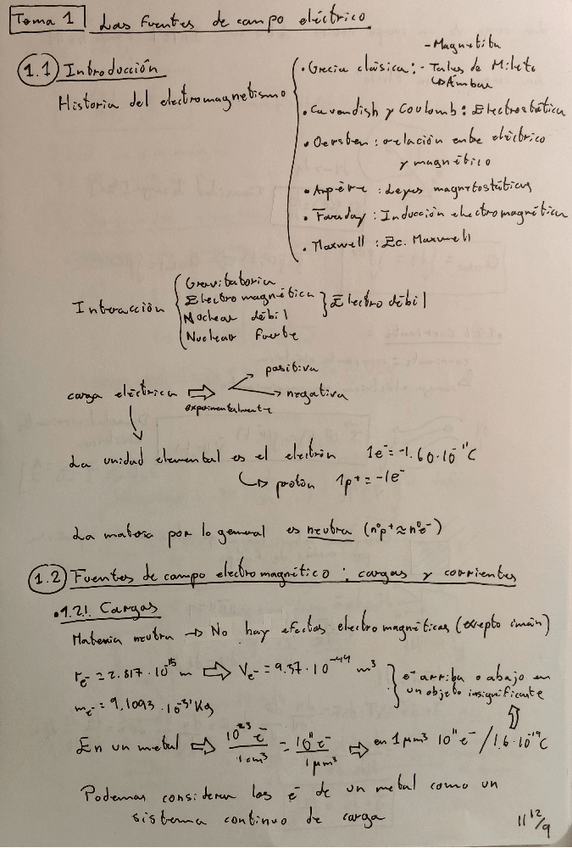 Tema 1 Las fuentes de campo eléctrico
1.1 Introducción
Historia del electromagnetismo
- Magnetita
• Grecia clásica: - Tales de Mileto
↳ Ámbar
• Cavendish y Coulomb: Electrostática
• Oersten: relación entre eléctrico
y magnético
• Ampère: Leyes magnetostáticas
• Faraday: Inducción electromagnética
• Maxwell: Ec. Maxwell
Interacción { Gravitatoria
Electromagnética
Nuclear débil } Electrodébil
Nuclear fuerte
carga eléctrica ⇒ positiva
experimentalmente negativa
La unidad elemental es el electrón 1e⁻ = -1.60·10⁻¹⁹C
↳ protón 1p⁺ = -1e⁻
La materia por lo general es neutra (nºp⁺ ≈ nºe⁻)
1.2 Fuentes de campo electromagnético: cargas y corrientes
• 1.2.1. Cargas
Materia neutra → No hay efectos electromagnéticas (exepto imán)
r_e⁻ = 2.817·10⁻¹⁵ m ⇒ V_e⁻ = 9.37·10⁻⁴⁴ m³
m_e⁻ = 9.1093·10⁻³¹ Kg
} e⁻ arriba o abajo en
un objeto insignificante
En un metal ⇒ 10²³ e⁻ / 1 cm³ = 10¹¹ e⁻ / 1 μm³ ⇒ en 1 μm³ 10¹¹ e⁻ / 1.6·10⁻¹⁹ C
Podemos considerar los e⁻ de un metal como un
sistema continuo de carga
11 12/9